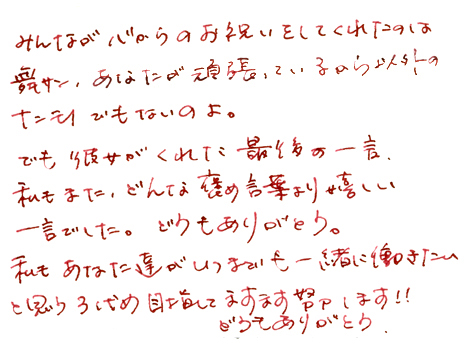 みんなが心からのお祝いをしてくれたのは
サン、あなたが頑張っているから以外の
ナニモノでもないのよ。
でも、彼女がくれた最後の一言、
私もまた、どんな褒め言葉より嬉しい
一言でした。どうもありがとう。
私もあなた達がいつまでも一緒に働きたい
と思うろばめ目指してますます努力します!!
どうもありがとう。